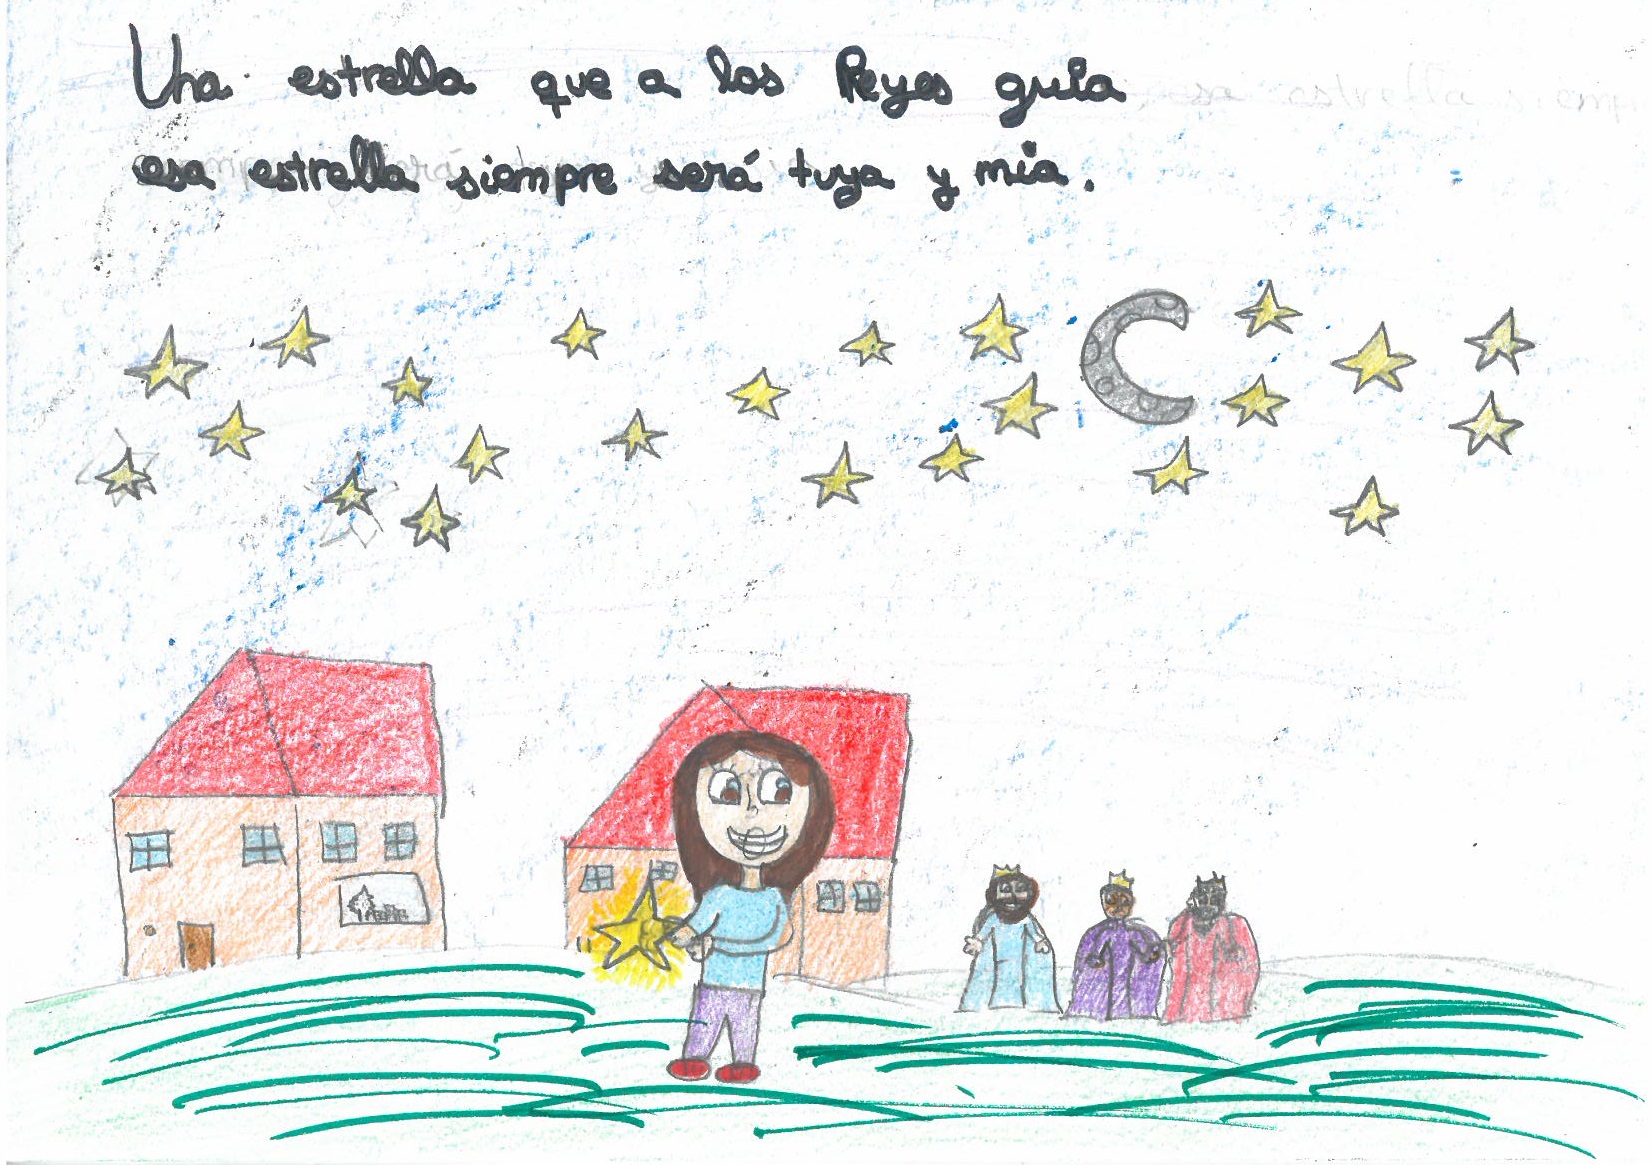 Una estrella que a los Reyes guía
esa estrella siempre será tuya y mía.